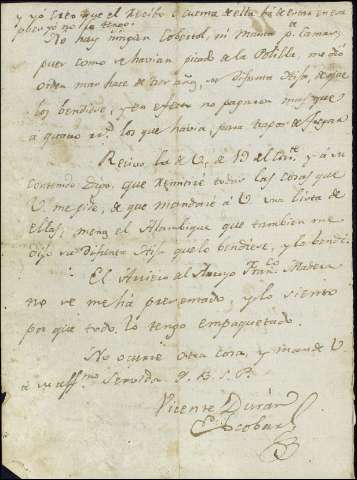 y yo creo que el Recibo o cuenta de ella ha de estar en esa
pues yo no la tengo.
No hay ningun Cobertol, ni Manta p.ª camas
puez como se havian picado de la Polilla, me dió
orden mas hace de tres años, su Difunta Hija, de que
los bendiese, y en efecto no pagaron mas que
a quatro r.s los que havia, para trapos de fregar
Recivo la de V. de 19 del Corr.te y a su
contenido Digo, que remitiré todas las cosas que
V. me pide, de que mandaré a V. una lista de
ellas; menos el Alambique que tambien me
dijo su Difunta Hija que lo bendiese, y lo bendi.
El Arriero del Arroyo Fran.co Madera
no se me ha presentado, y lo siento
por que todo lo tengo empaquetado.
No ocurre otra cosa, y mande V.
a su aff.mo Servidor Q. B. S. P.
Vicente Durán
Escobar